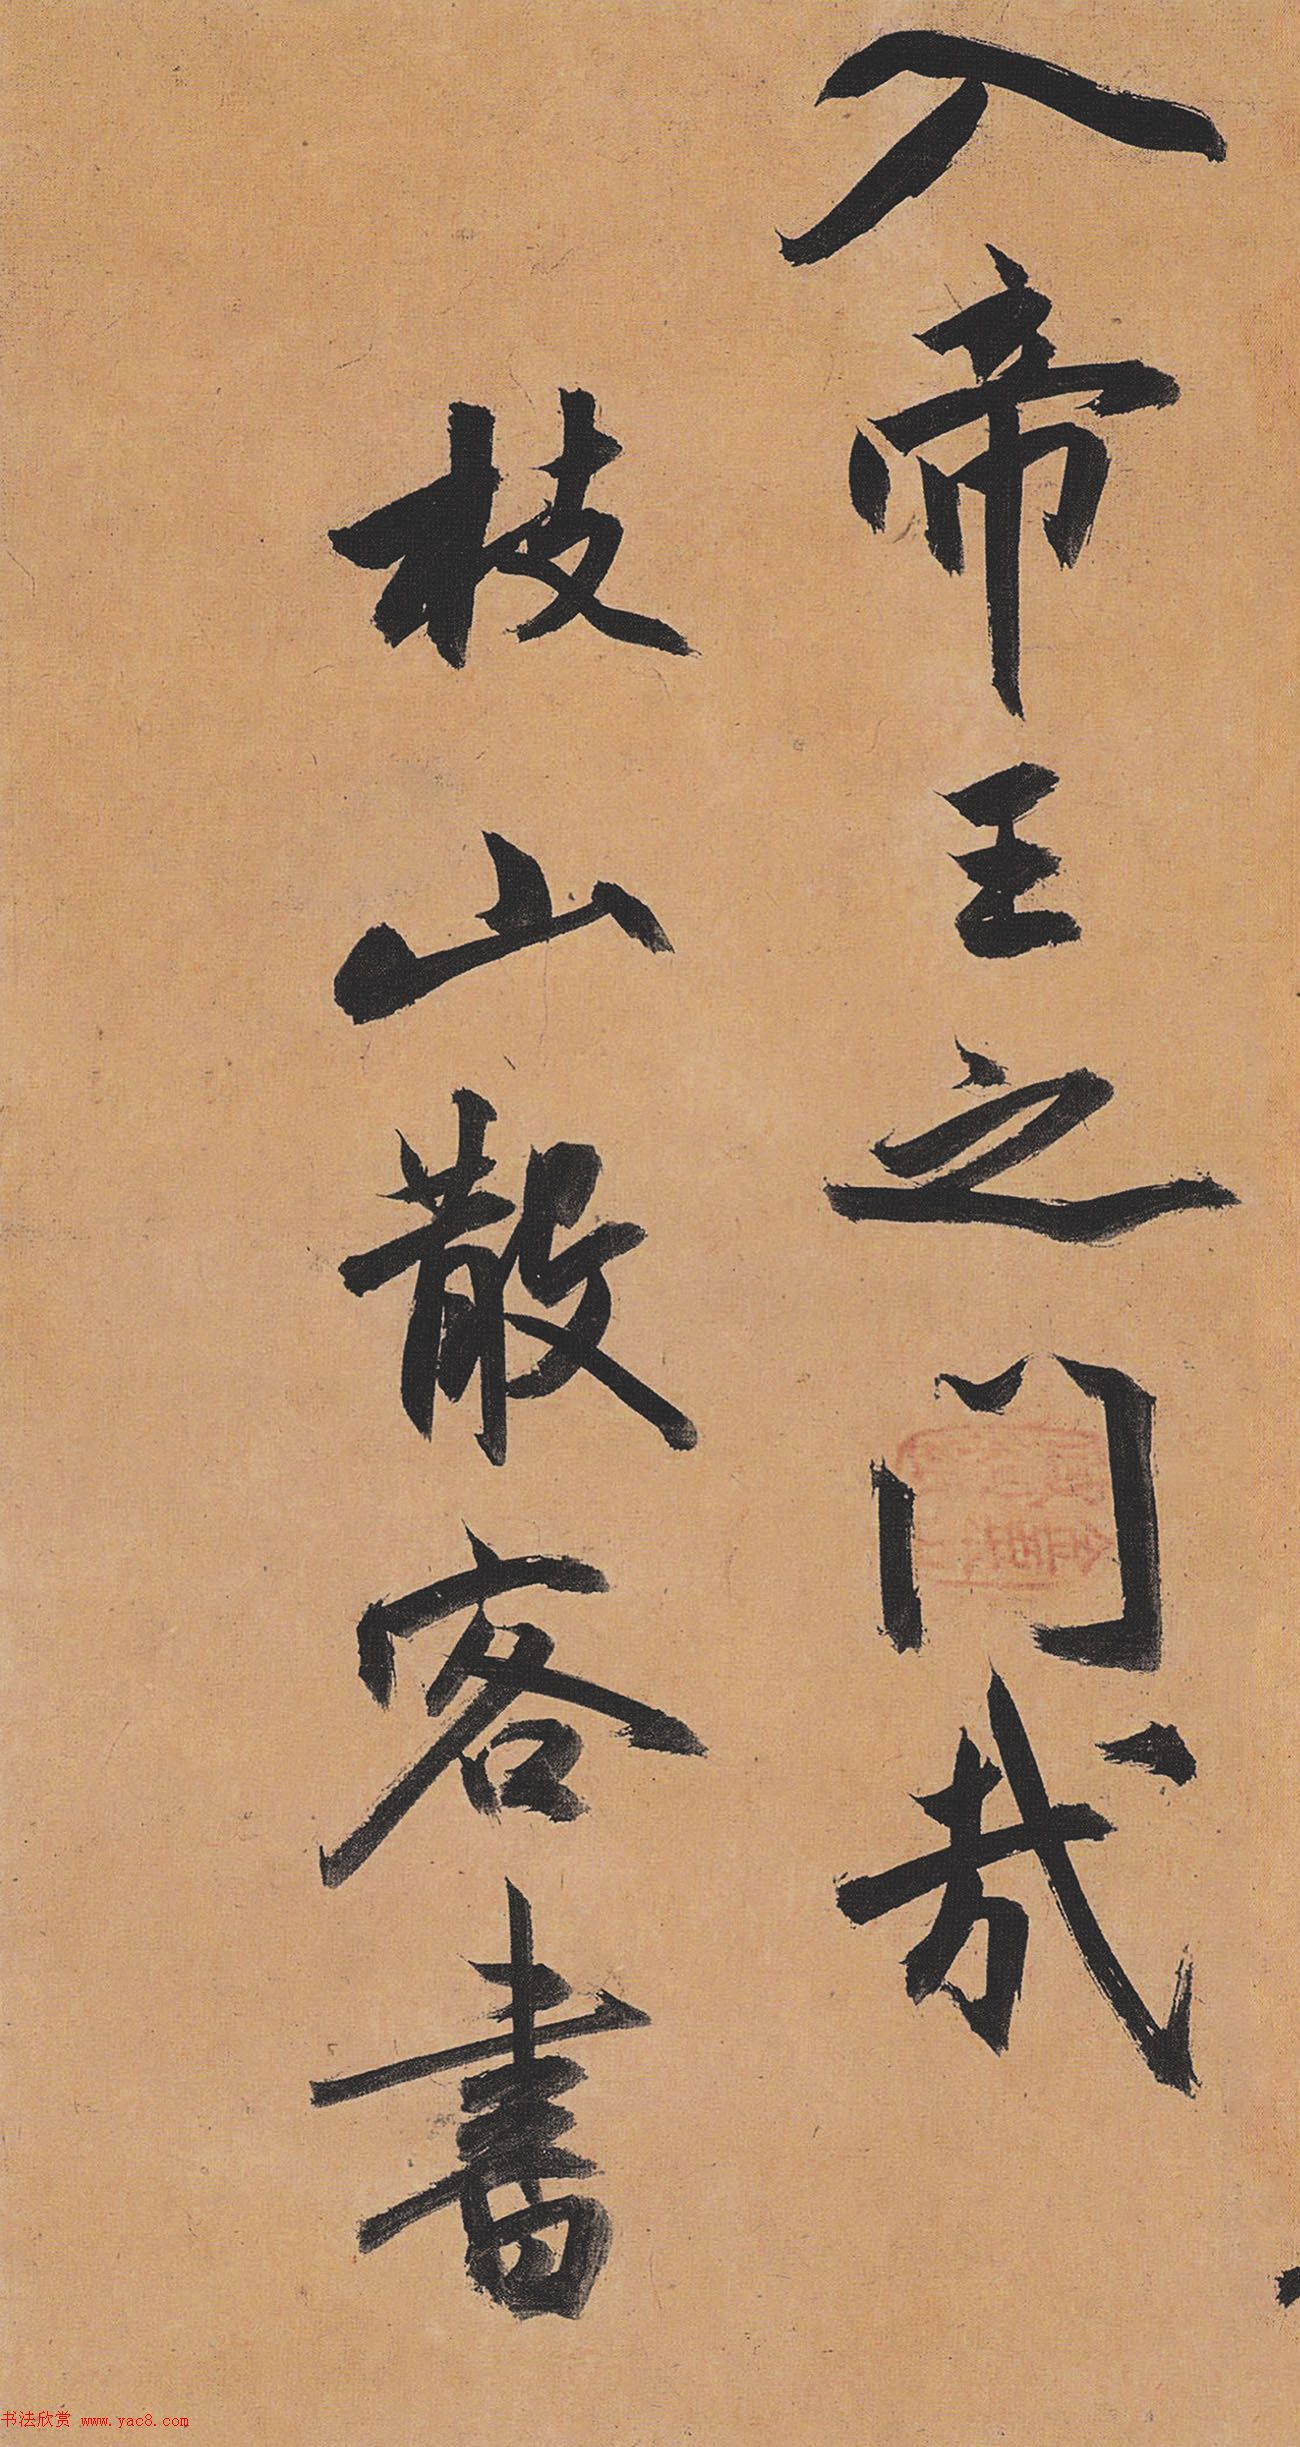 入帝王之门哉
枝山散客書
书法欣赏 www.yac8.com